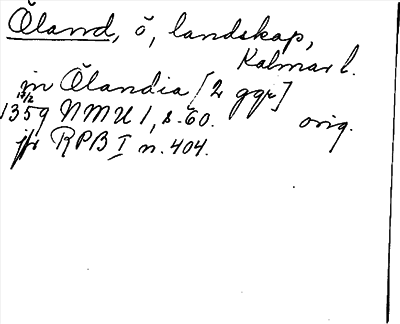 Öland, ö, landskap,
Kalmar l.
in Ölandia [2 ggr]
17/2
1359 NMU 1, s. 60. orig.
jfr RPB I n. 404.